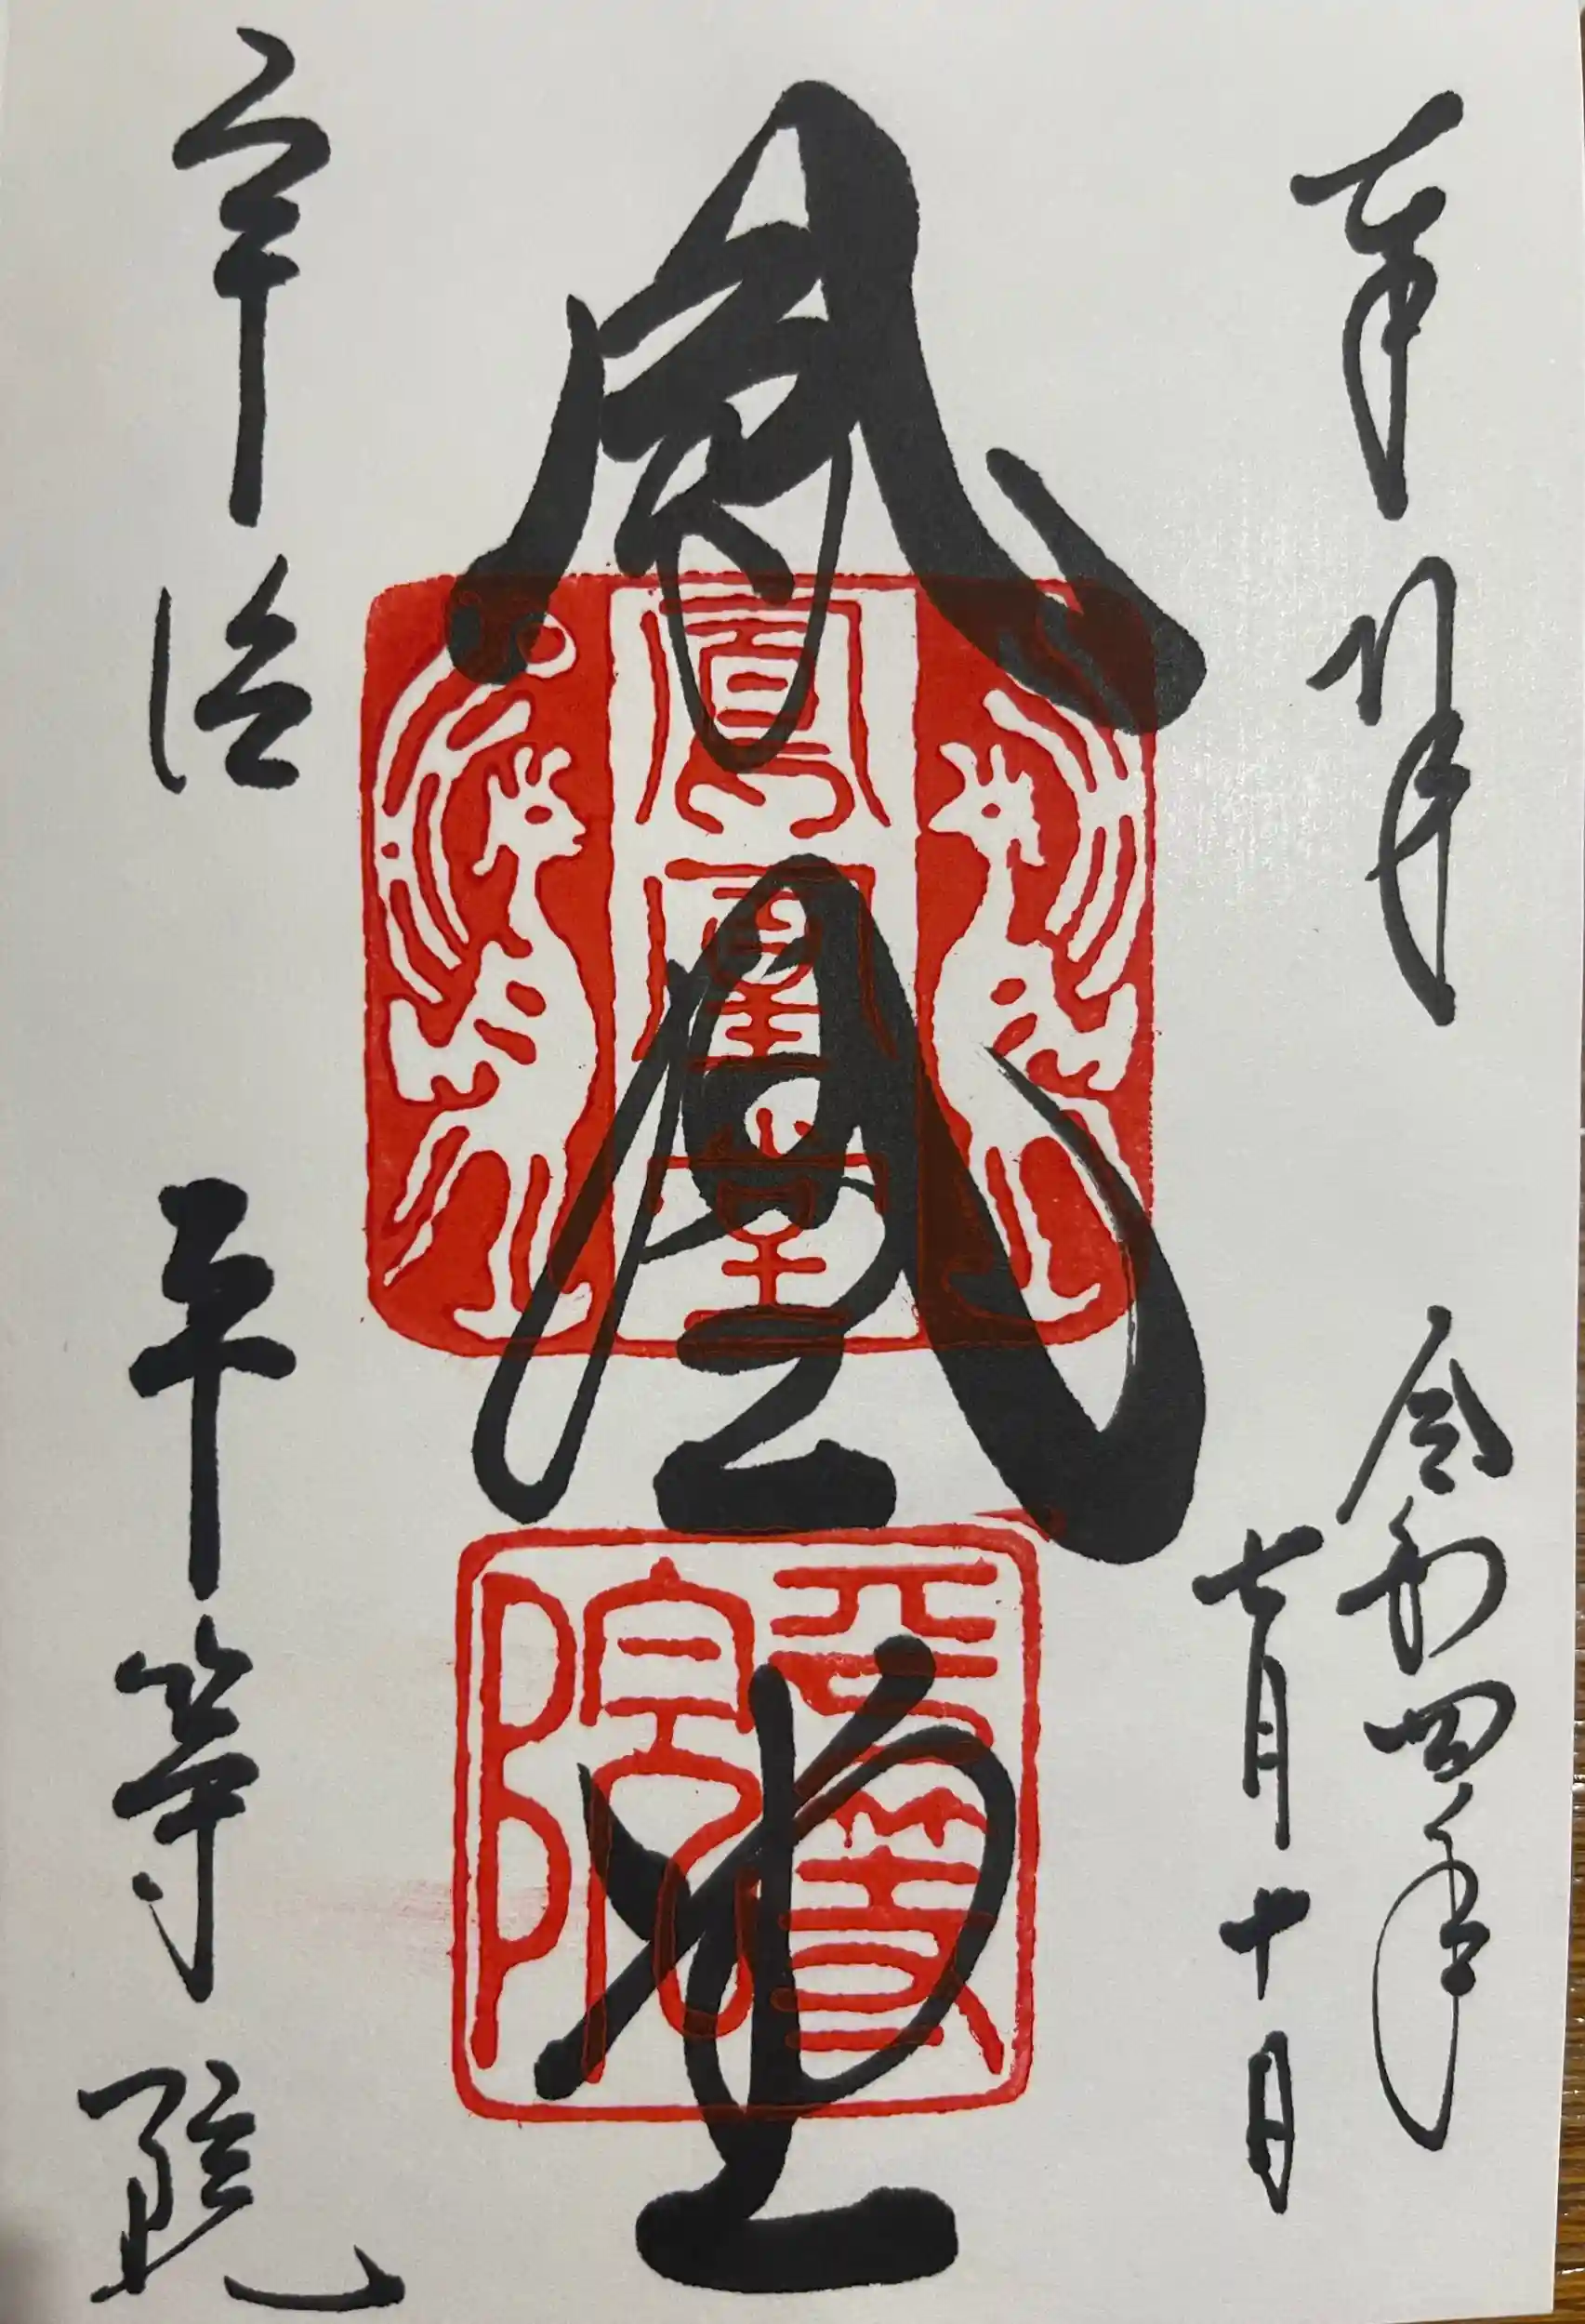 奉拝
令和四年
七月十日
鳳凰堂
鳳凰堂
平等院
宇治 平等院